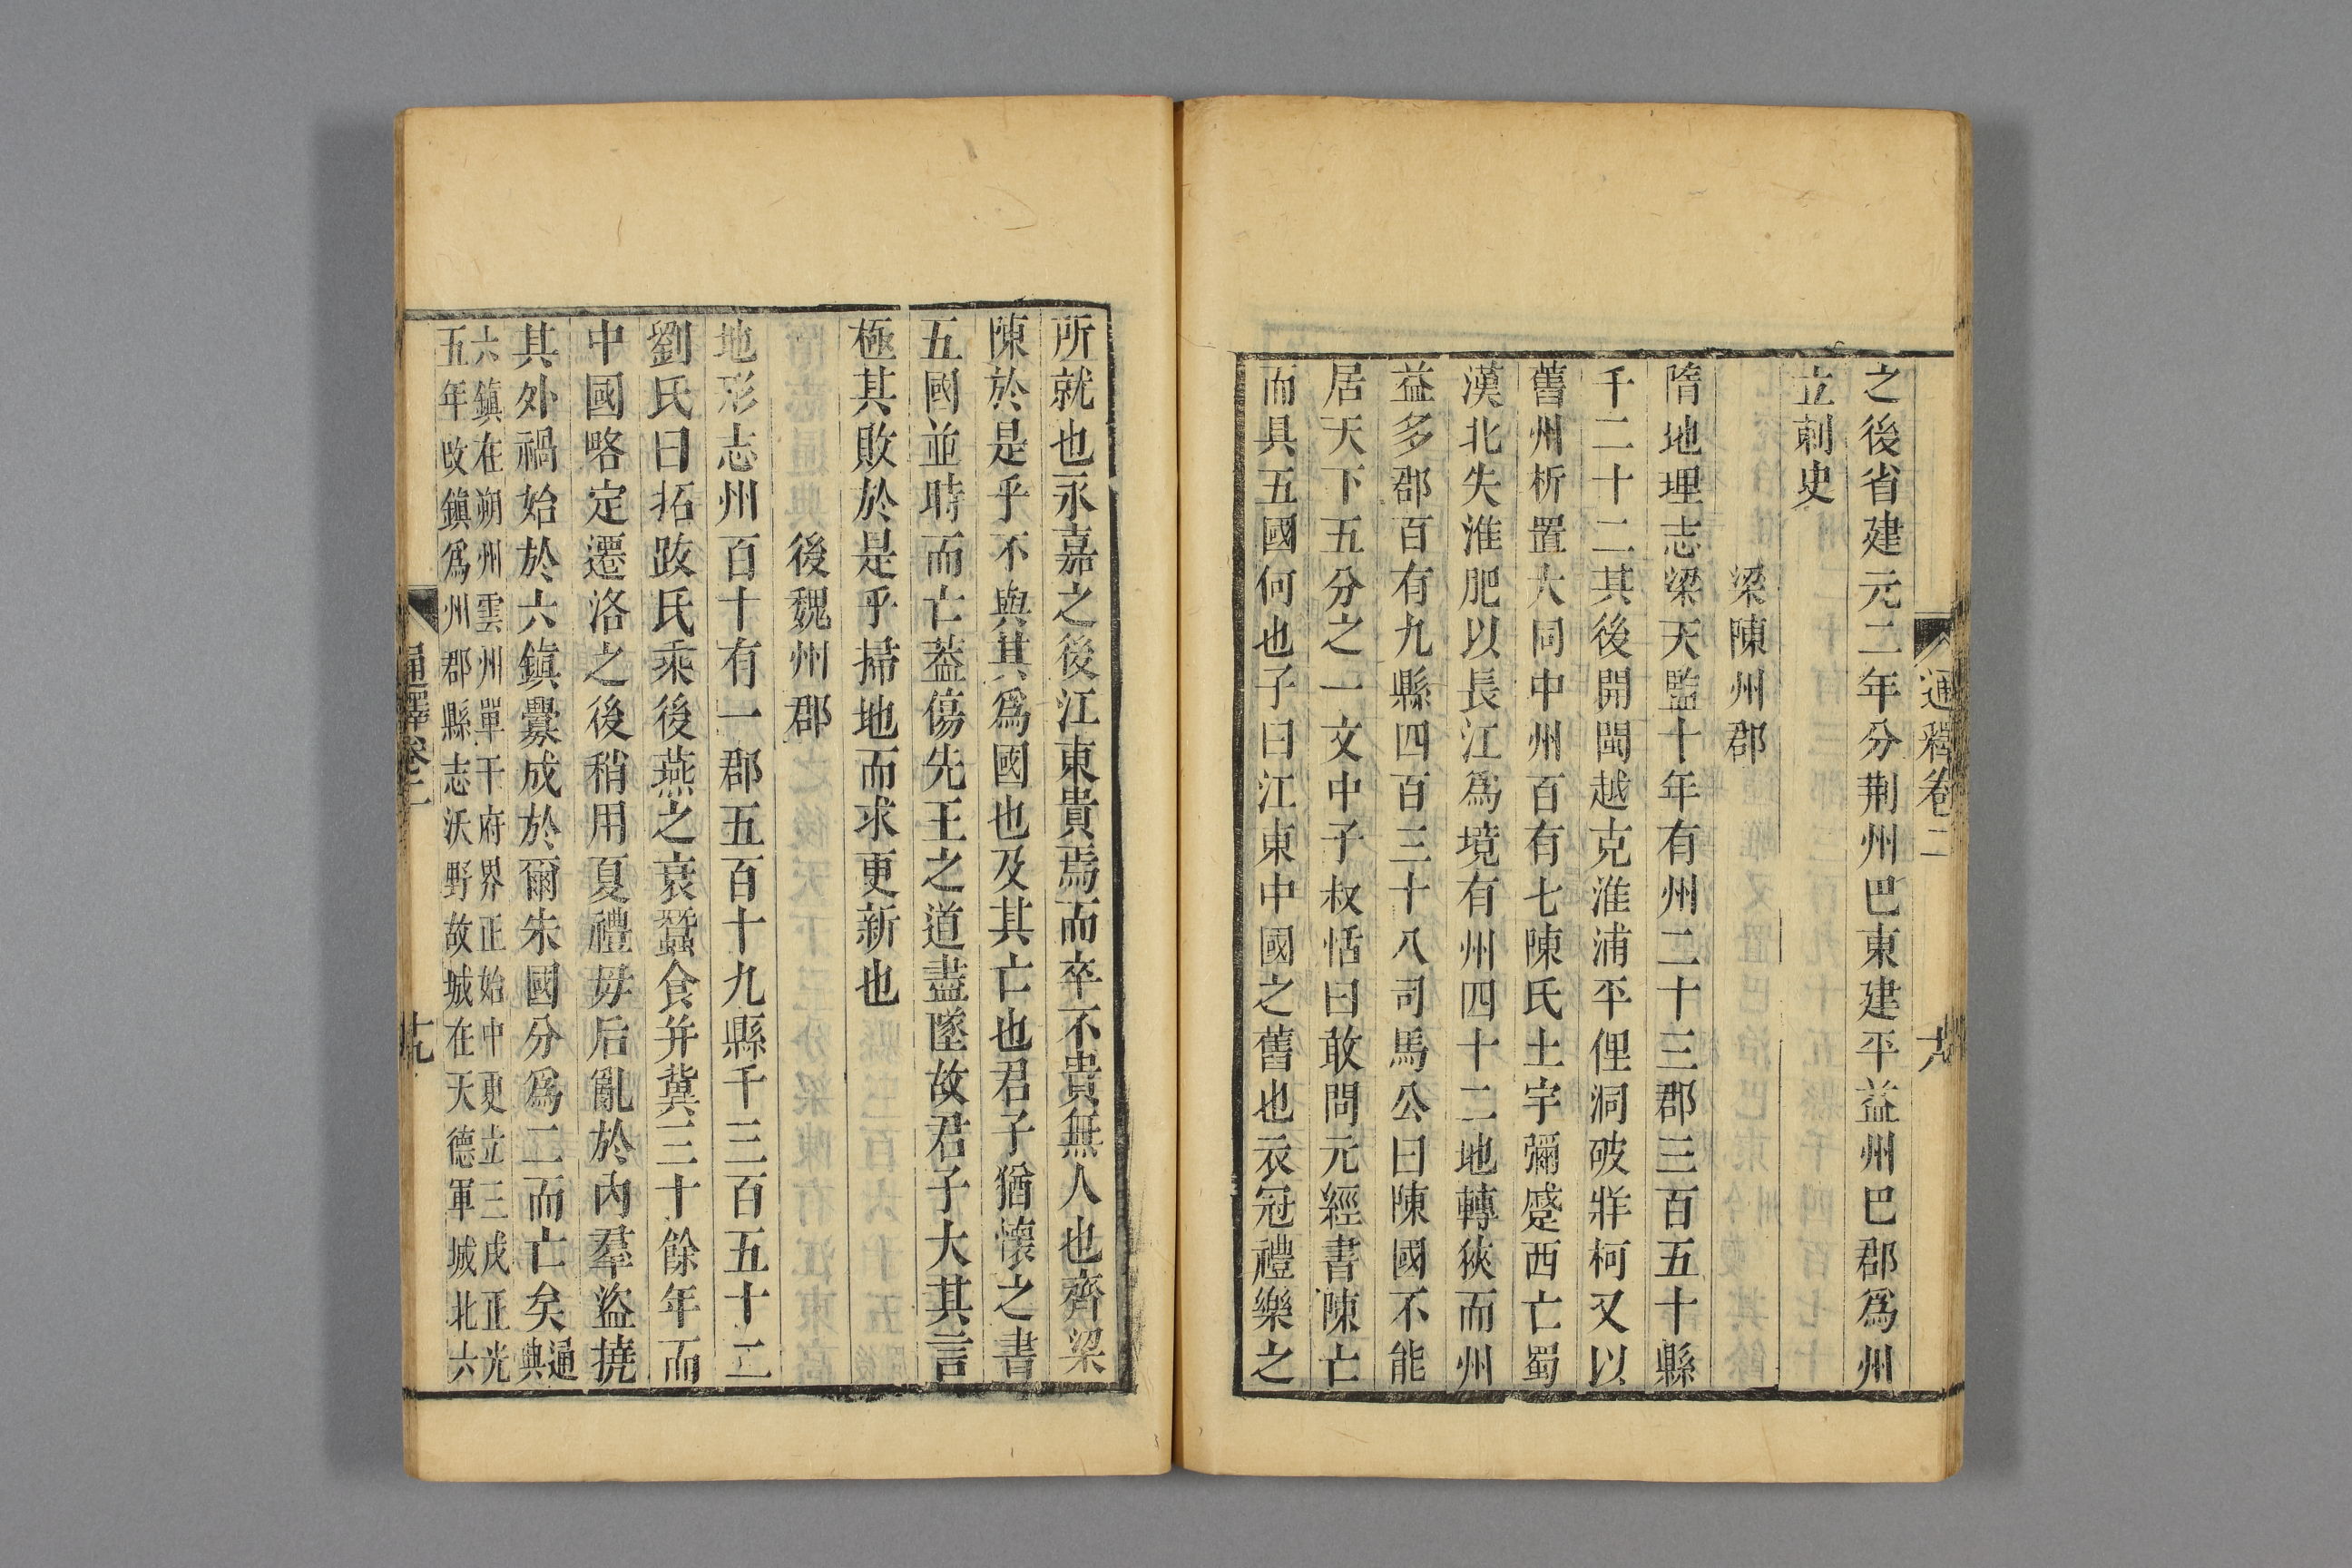 通釋卷二
之後省建元二年分荆州巴東建平益州巴郡爲州
立刺史
梁陳州郡
隋地理志梁天監十年有州二十三郡三百五十縣
千二十二其後開閩越克淮浦平俚洞破牂柯又以
舊州析置大同中州百有七陳氏土宇彌蹙西亡蜀
漢北失淮肥以長江爲境有州四十二地轉狹而州
益多郡百有九縣四百三十八司馬公曰陳國不能
居天下五分之一文中子叔恬曰敢問元經書陳亡
而具五國何也子曰江東中國之舊也衣冠禮樂之
所就也永嘉之後江東貴焉而卒不貴無人也齊梁
陳於是乎不與其爲國也及其亡也君子猶懷之書
五國並時而亡葢傷先王之道盡墜故君子大其言
極其敗於是乎掃地而求更新也
後魏州郡
地形志州百十有一郡五百十九縣千三百五十二
劉氏曰拓跋氏乘後燕之衰蠶食并冀三十餘年而
中國略定遷洛之後稍用夏禮毋后亂於內羣盜撓
其外禍始於六鎮釁成於爾朱國分爲二而亡矣通典
六鎮在朔州雲州單于府界正始中更立三戍正光
五年改鎮爲州郡縣志沃野故城在天德軍城北六
通釋卷二